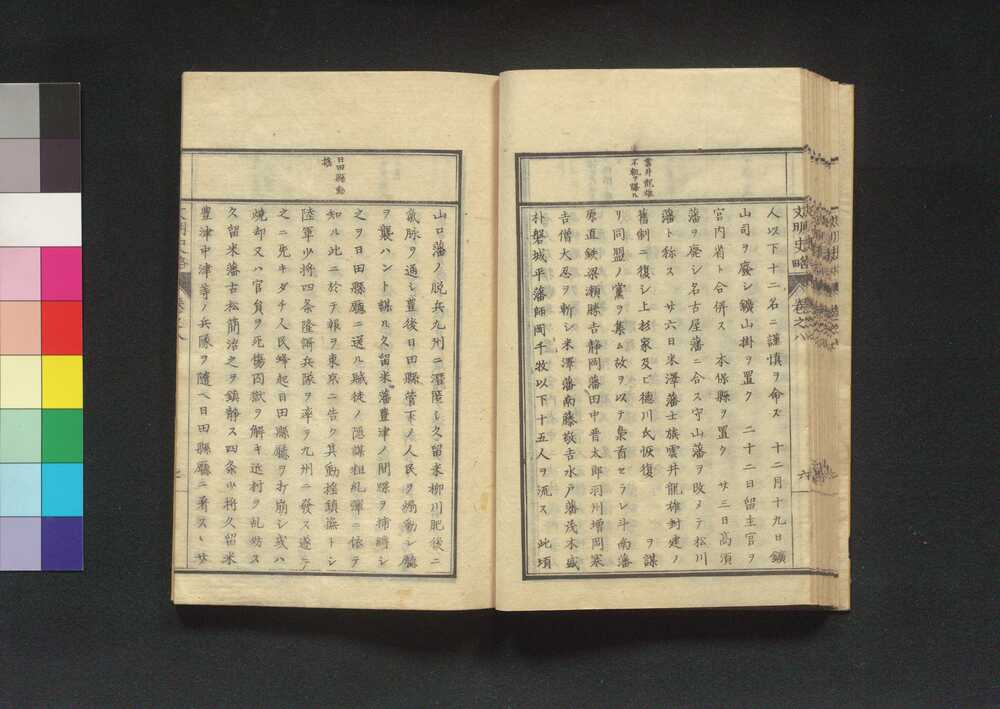 文明史略 巻之八 六
雲井龍雄
不軌ヲ謀ル
人以下十二名ニ謹慎ヲ命ス 十二月十九日鑛
山司ヲ廢シ鑛山掛ヲ置ク 二十二日留主官ヲ
宮内省ト合併ス 本保縣ヲ置ク 廿三日高須
藩ヲ廢シ名古屋藩ニ合ス守山藩ヲ改メテ松川
藩ト称ス 廿六日米澤藩士族雲井龍雄封建ノ
舊制ニ復シ上杉家及ヒ德川氏恢復 ヲ謀
リ同盟ノ黨ヲ集ム故ヲ以テ梟首セラレ斗南藩
原直鉄梁瀬勝吉静岡藩田中晋太郎羽川増岡寒
吉僧大忍ヲ斬シ米澤藩南藤敬吉水戸藩茂木
朴磐城平藩師岡千牧以下十五人ヲ流ス 此頃
日田縣動
揺
山口藩ノ脱兵九州ニ潜匿シ久留米柳川肥後ニ
氣脉ヲ通シ豊後日田縣管下ノ人民ヲ煽動シ廳
ヲ襲ハント謀ル久留米藩豊津ノ間諜ヲ捕縛シ
之ヲ日田縣廳ニ送ル賊徒ノ隠謀粗糺彈ニ依テ
知ル此ニ於テ報ヲ東京ニ告ク其動揺鎮撫トシ
陸軍少将四条隆謌兵隊ヲ率ヲ九州ニ發ス遂ニ
之ニ先キダチ人民蜂起日田縣廳ヲ打崩シ或ハ
焼却又ハ官員ヲ死傷囚獄ヲ解キ近村ヲ乱妨ス
久留米藩古松簡治之ヲ鎮静ス四条少将久留米
豊津中津等ノ兵隊ヲ随ヘ日田縣廳ニ著ス 廿